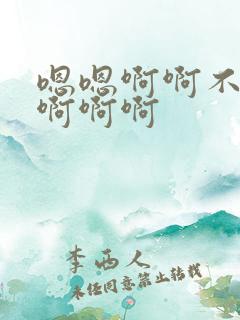 嗯嗯啊啊不
啊啊啊
李西人
未经同意禁止转载